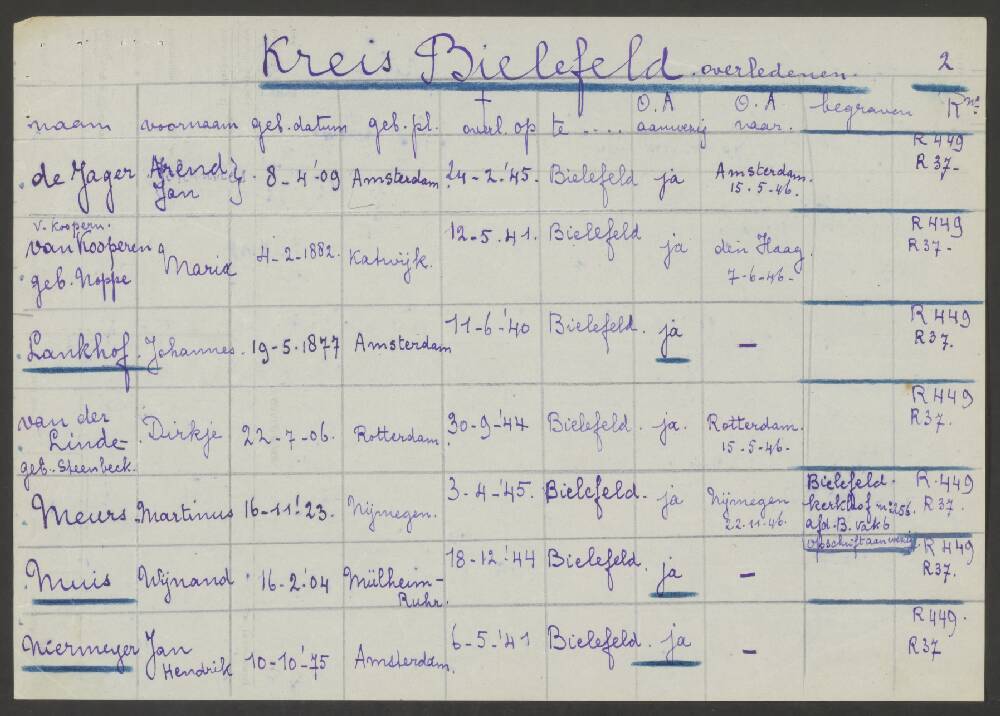 Kreis Bielefeld. overledenen. 2
naam voornaam geb. datum geb. pl. † overl. op te .... O.A aanwezig O.A naar. begraven R no
de Jager Arend Jan 8-4-'09 Amsterdam. 24-2-'45. Bielefeld ja Amsterdam. 15.5-'46. R 449 R 37-
v. Koopern.
van Kooperen geb. Noppe Maria 4-2-1882. Katwijk. 12-5.41. Bielefeld ja den Haag. 7-6-46. R 449 R 37-
Lankhof. Johannes. 19-5.1877 Amsterdam 11-6-'40 Bielefeld. ja – R 449 R 37.
van der Linde- geb. Steenbeck. Dirkje 22-7-06. Rotterdam. 30-9-'44 Bielefeld. ja. Rotterdam. 15-5-46. R 449 R 37.
Meurs. Martinus 16-11-'23. Nijmegen. 3-4-'45. Bielefeld. ja Nijmegen 22.11-46. Bielefeld- kerkhof no 256 afd. B. vak 6 opschrift aanwezig. R. 449 R 37.
Muis Wijnand 16-2-'04 Mülheim- Ruhr. 18-12-'44 Bielefeld. ja – R 449 R 37.
Niermeyer Jan Hendrik 10-10-'75 Amsterdam. 6-5-'41 Bielefeld. ja – R 449. R 37